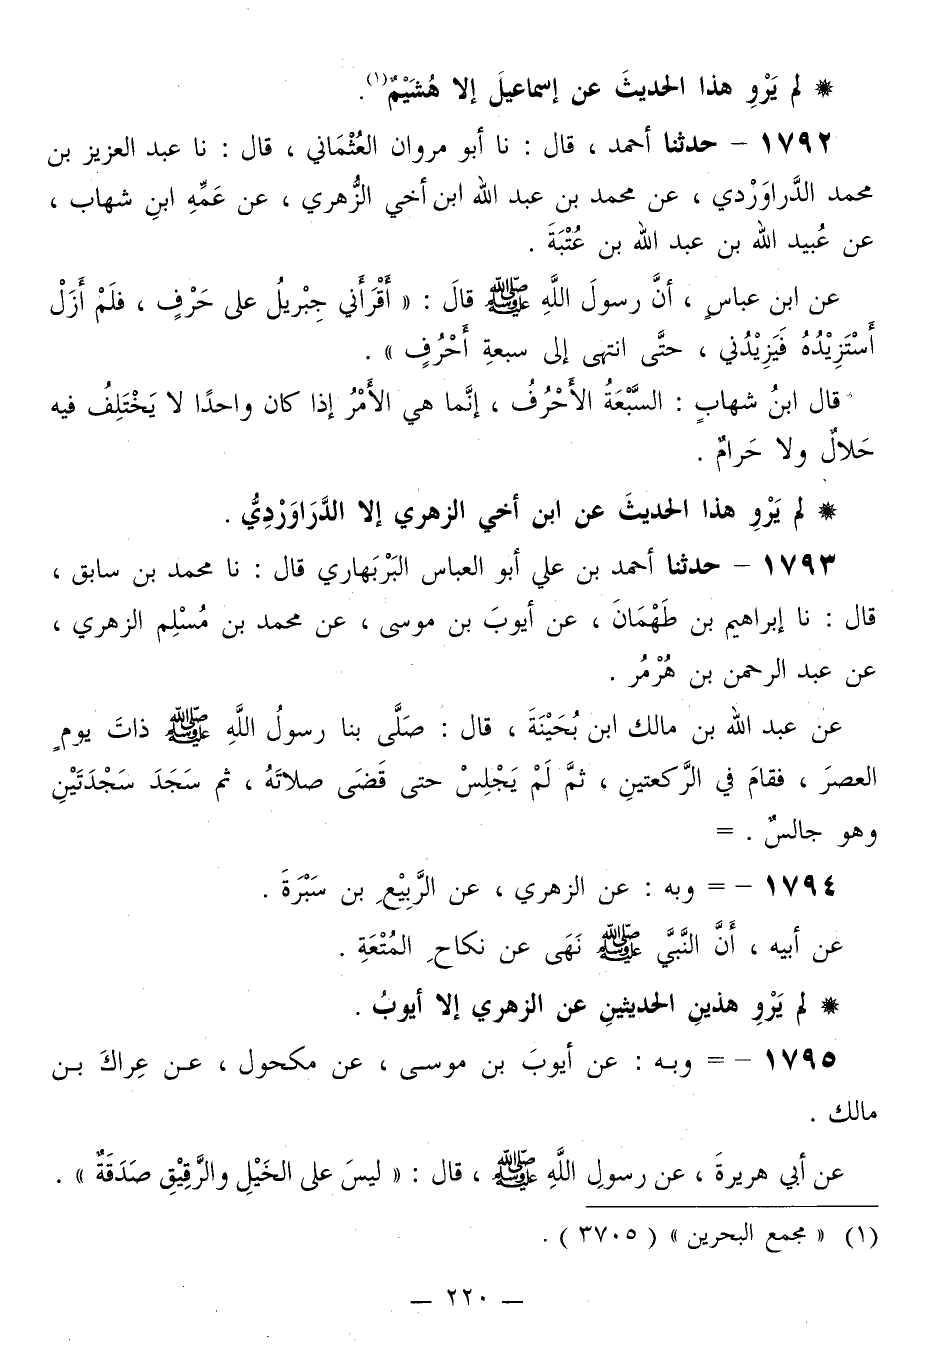 * لم يَرْوِ هذا الحديثَ عن إسماعيلَ إلا هُشَيْمٌ(١).
١٧٩٢ – حدثنا أحمد ، قال : نا أبو مروان العُثْمَاني ، قال : نا عبد العزيز بن
محمد الدَّراوَرْدي ، عن محمد بن عبد الله ابن أخي الزُّهري ، عن عَمِّهِ ابنِ شهاب ،
عن عُبيد الله بن عبد الله بن عُتْبَةَ .
عن ابن عباسٍ ، أنَّ رسولَ اللَّهِ ﷺ قالَ : « أَقْرَأَني جِبْريلُ على حَرْفٍ ، فلَمْ أَزَلْ
أَسْتَزِيْدُهُ فَيَزِيْدُني ، حتَّى انتهى إلى سبعةِ أَحْرُفٍ » .
قال ابنُ شهابٍ : السَّبْعَةُ الأَحْرُفُ ، إنَّما هي الأَمْرُ إذا كان واحدًا لا يَخْتَلِفُ فيه
حَلالٌ ولا حَرامٌ .
* لم يَرْوِ هذا الحديثَ عن ابن أخي الزهري إلا الدَّرَاوَرْدِيُّ .
١٧٩٣ – حدثنا أحمد بن علي أبو العباس البَرْبَهاري قال : نا محمد بن سابق ،
قال : نا إبراهيم بن طَهْمَانَ ، عن أيوبَ بن موسى ، عن محمد بن مُسْلِم الزهري ،
عن عبد الرحمن بن هُرْمُر .
عن عبد الله بن مالك ابن بُحَيْنَةَ ، قال : صَلَّى بنا رسولُ اللَّهِ ﷺ ذاتَ يومٍ
العصرَ ، فقامَ في الرَّكعتينِ ، ثمَّ لَمْ يَجْلِسْ حتى قَضَى صلاتَهُ ، ثم سَجَدَ سَجْدَتَيْنِ
وهو جالسٌ . =
١٧٩٤ – = وبه : عن الزهري ، عن الرَّبِيْعِ بن سَبْرَةَ .
عن أبيه ، أَنَّ النَّبيَّ ﷺ نَهَى عن نكاحِ المُتْعَةِ .
* لم يَرْوِ هذينِ الحديثينِ عن الزهري إلا أيوبُ .
١٧٩٥ – = وبـه : عن أيوبَ بن موسـى ، عن مكحول ، عـن عِراكَ بـن
مالك .
عن أبي هريرةَ ، عن رسولِ اللَّهِ ﷺ ، قال : « ليسَ على الخَيْلِ والرَّقِيْقِ صَدَقَةٌ » .
(١) « مجمع البحرين » ( ٣٧٠٥ ) .
— ٢٢٠ —